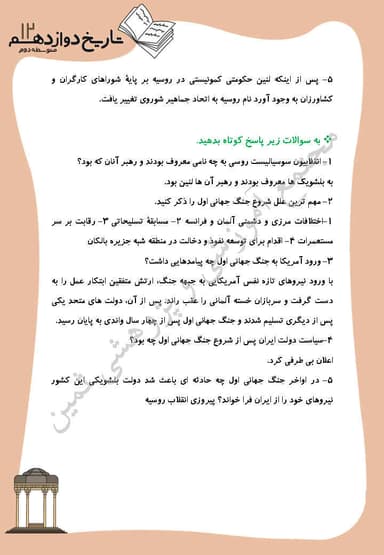 تاریخ دوازدهم
۱۲
متوسطه دوم
۵- پس از اینکه لنین حکومتی کمونیستی در روسیه بر پایهٔ شوراهای کارگران و
کشاورزان به وجود آورد نام روسیه به اتحاد جماهیر شوروی تغییر یافت.
❖ به سوالات زیر پاسخ کوتاه بدهید.
۱- انقلابیون سوسیالیست روسی به چه نامی معروف بودند و رهبر آنان که بود؟
به بلشویک ها معروف بودند و رهبر آن ها لنین بود.
۲- مهم ترین علل شروع جنگ جهانی اول را ذکر کنید.
۱-اختلافات مرزی و دشمنی آلمان و فرانسه ۲- مسابقهٔ تسلیحاتی ۳- رقابت بر سر
مستعمرات ۴- اقدام برای توسعه نفوذ و دخالت در منطقه شبه جزیره بالکان
۳- ورود آمریکا به جنگ جهانی اول چه پیامدهایی داشت؟
با ورود نیروهای تازه نفس آمریکایی به جبهه جنگ، ارتش متفقین ابتکار عمل را به
دست گرفت و سربازان خسته آلمانی را عقب راند. پس از آن، دولت های متحد یکی
پس از دیگری تسلیم شدند و جنگ جهانی اول پس از چهار سال واندی به پایان رسید.
۴-سیاست دولت ایران پس از شروع جنگ جهانی اول چه بود؟
اعلان بی طرفی کرد.
۵- در اواخر جنگ جهانی اول چه حادثه ای باعث شد دولت بلشویکی این کشور
نیروهای خود را از ایران فرا خواند؟ پیروزی انقلاب روسیه